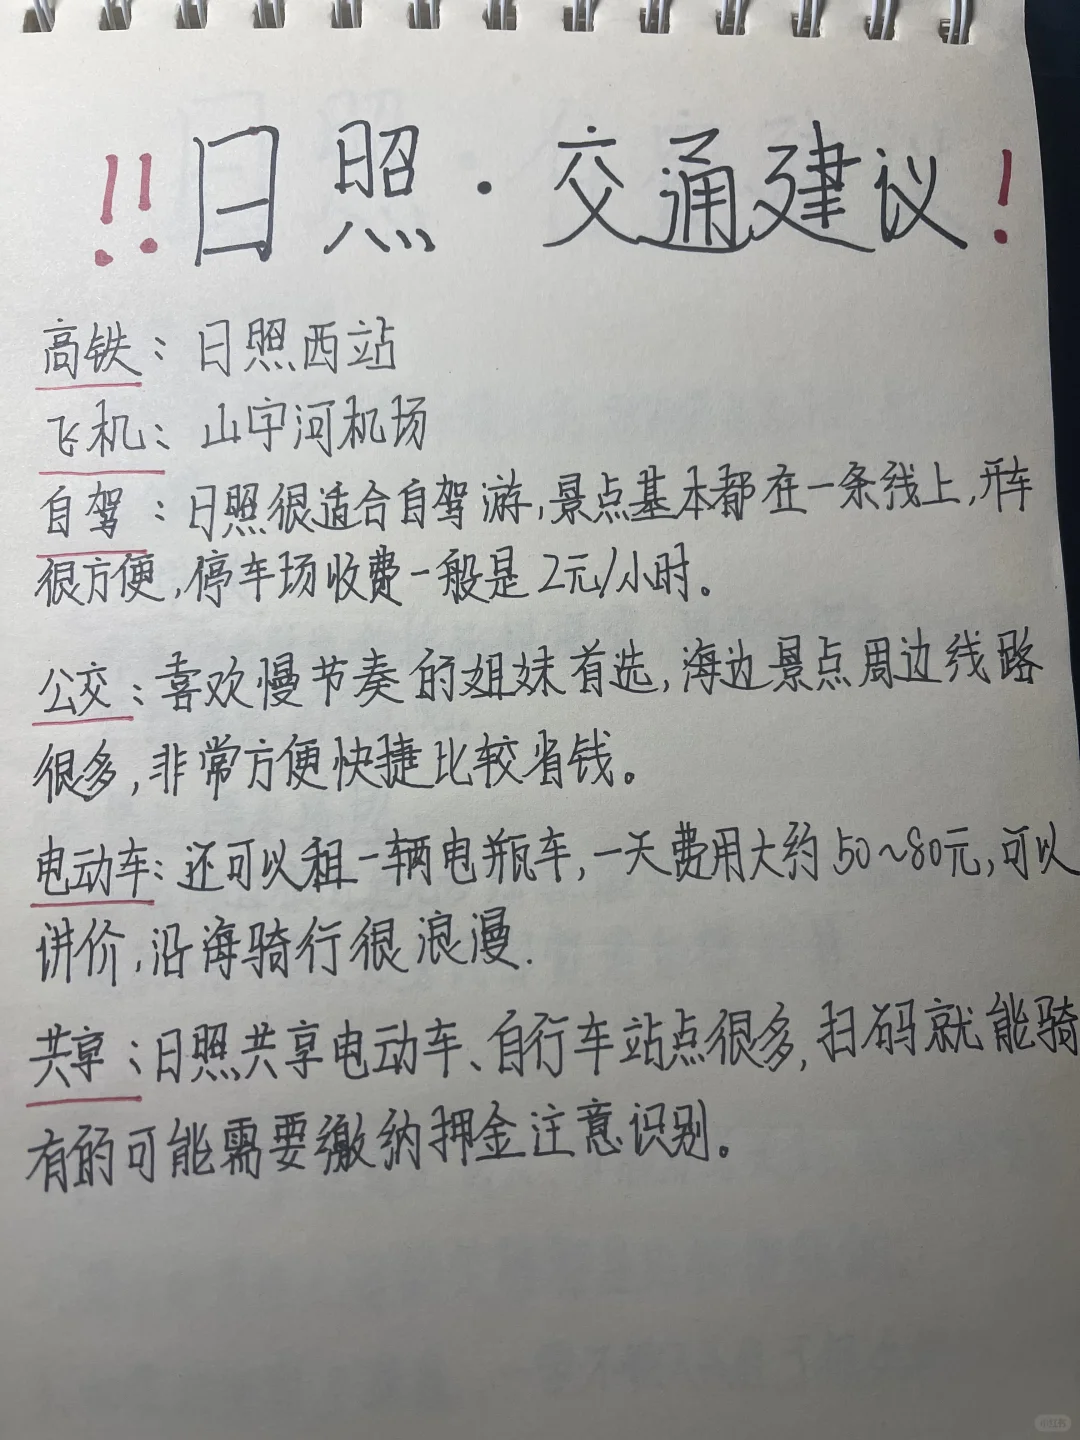 !!日照·交通建议!
高铁：日照西站
飞机：山字河机场
自驾：日照很适合自驾游,景点基本都在一条线上,开车
很方便,停车场收费一般是2元/小时。
公交：喜欢慢节奏的姐妹首选,海边景点周边线路
很多,非常方便快捷比较省钱。
电动车：还可以租一辆电瓶车,一天费用大约50~80元,可以
讲价,沿海骑行很浪漫.
共享：日照共享电动车、自行车站点很多,扫码就能骑
有的可能需要缴纳押金注意识别。
小红书